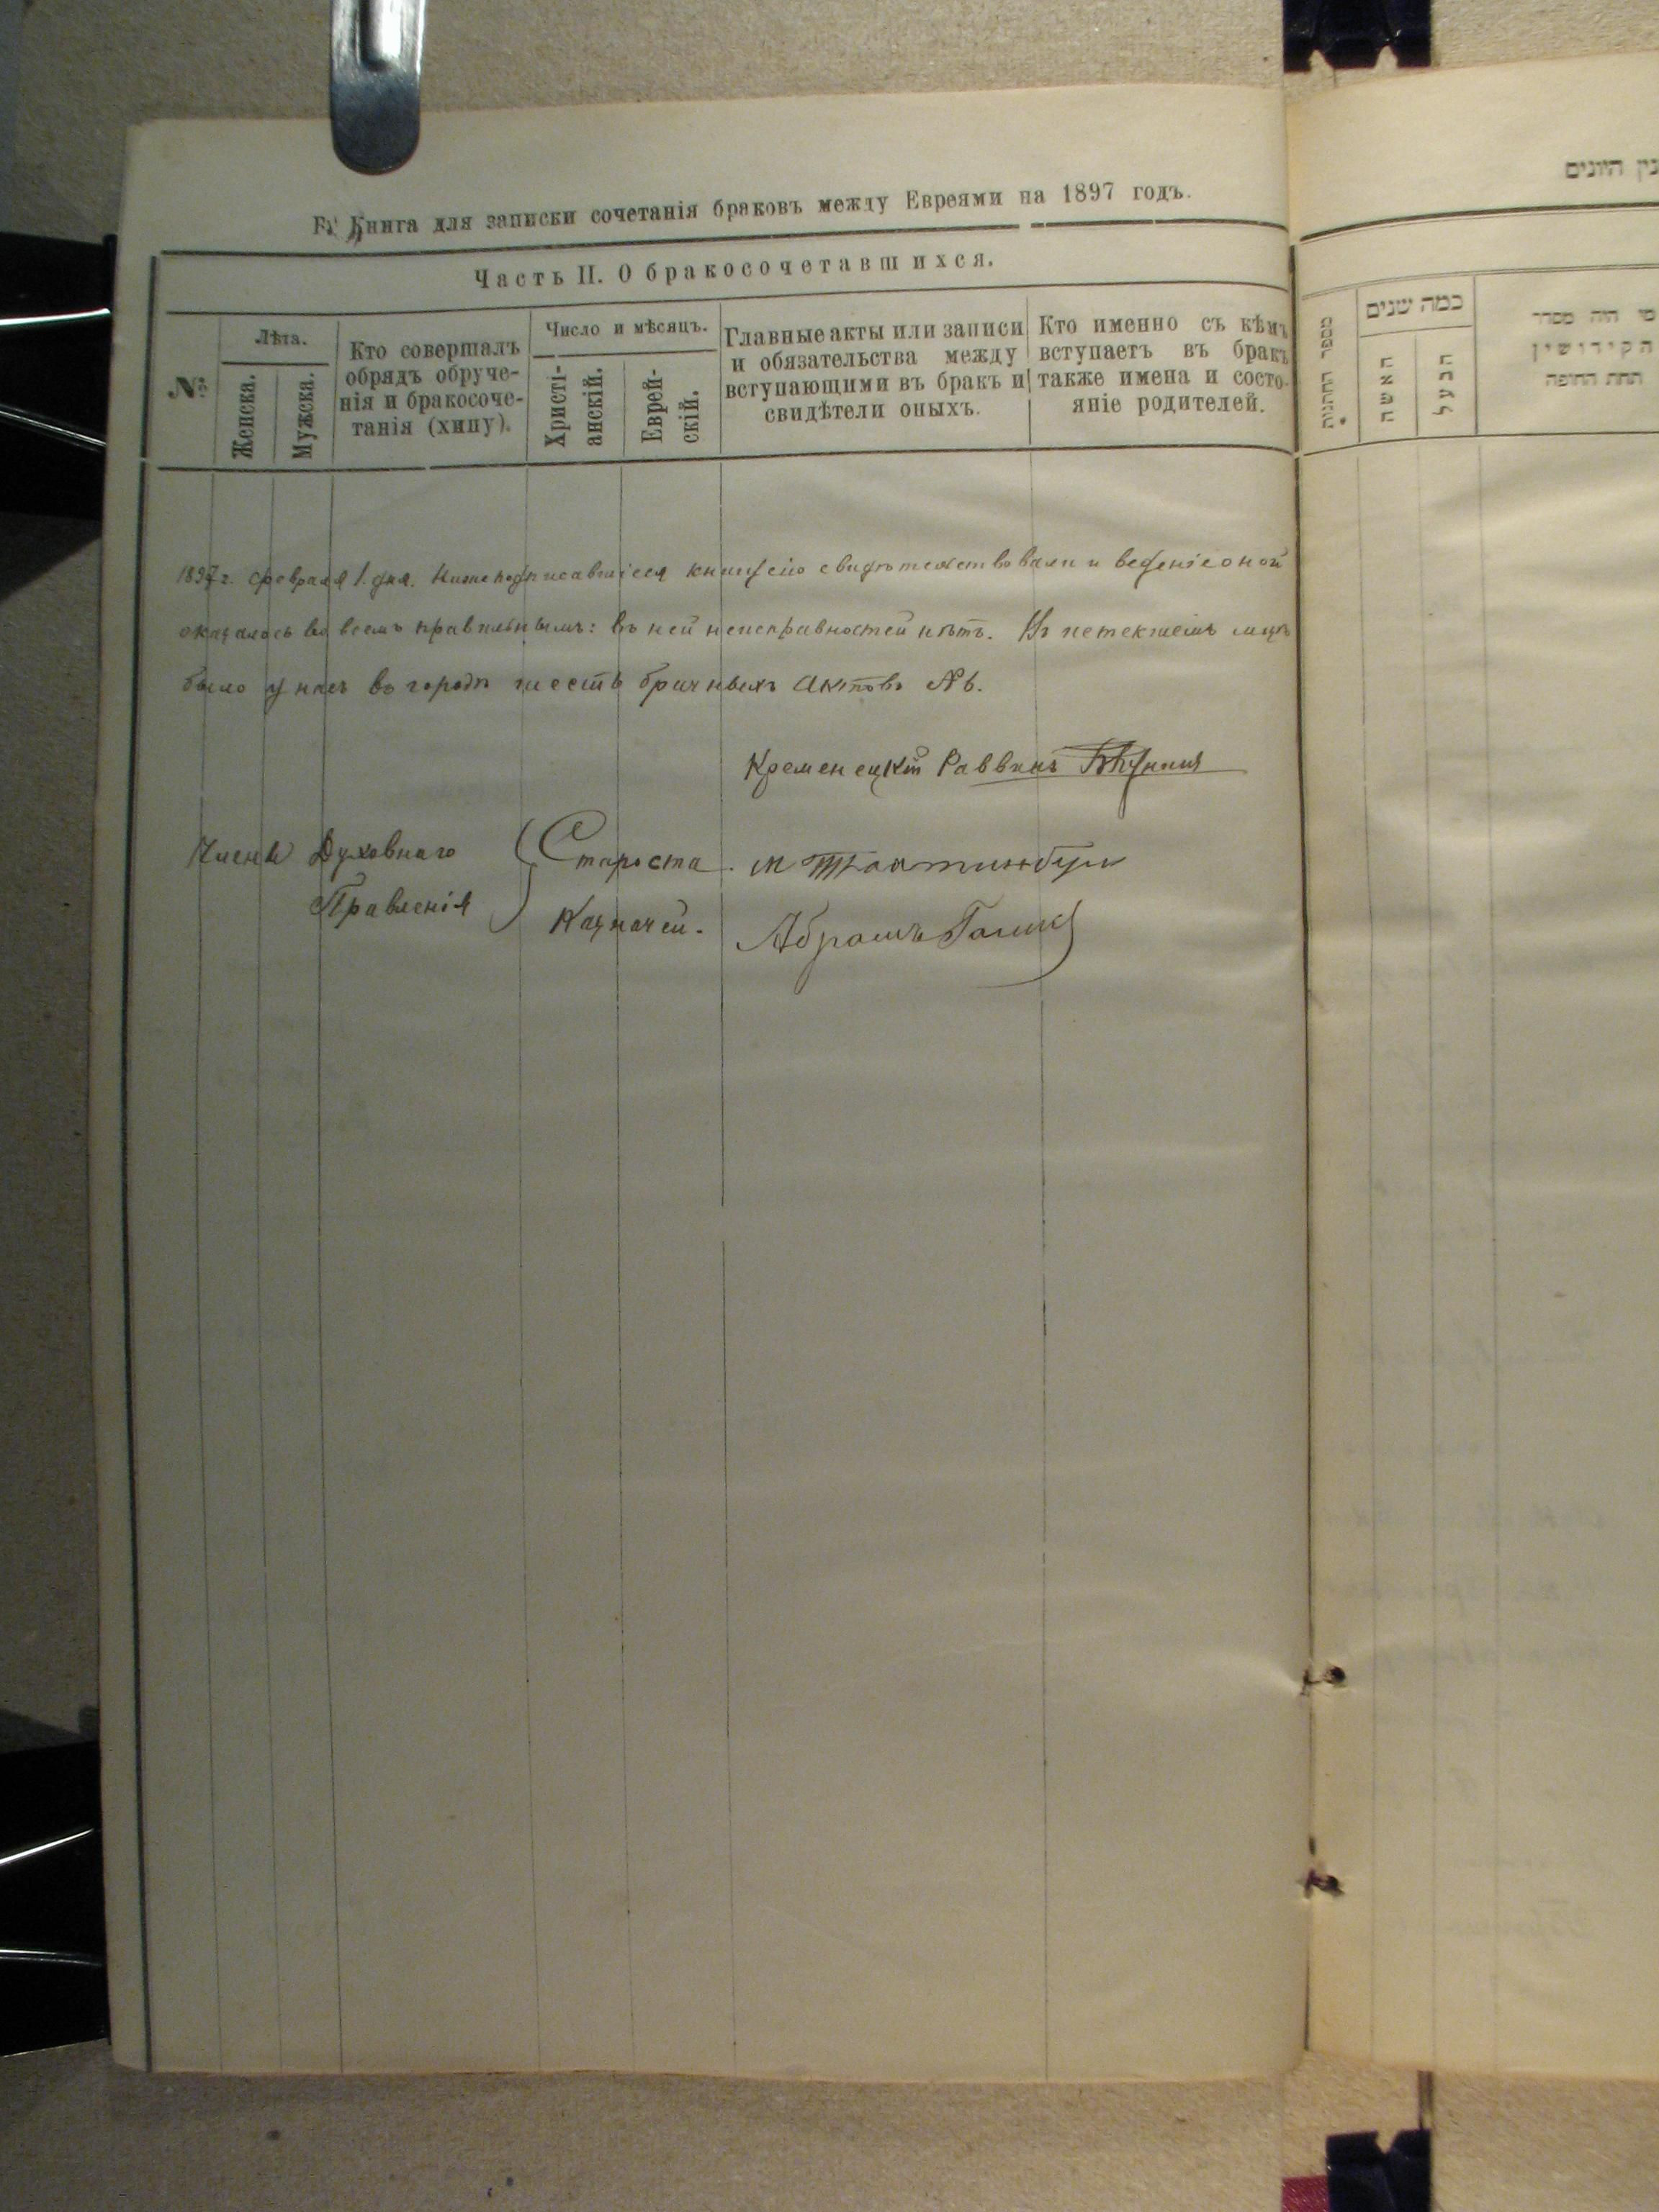 Книга для записки сочетанія браковъ между Евреями на 1897 годъ.
Часть II. О бракосочетавшихся.
№
Лѣта.
Женска.
Мужска.
Кто совершалъ
обрядъ обруче-
нія и бракосоче-
танія (хипу).
Число и мѣсяцъ.
Христі-
анскій.
Еврей-
скій.
Главные акты или записи
и обязательства между
вступающими въ бракъ и
свидѣтели оныхъ.
Кто именно съ кѣмъ
вступаетъ въ бракъ
также имена и состо-
яніе родителей.
1897 г. февраля 1. дня. Нижеподписавшіеся книгу сію свидѣтельствовали и веденіе оной
оказалось во всемъ правильнымъ: въ ней неисправностей нѣтъ. Въ истекшемъ мцѣ
было у насъ въ городѣ шесть брачныхъ актовъ № 6.
Кременецкій Раввинъ
Члены Духовнаго
Правленія
Староста.
Казначей. Абрамъ
נין היונים
מספר החתונה
כמה שנים
האשה
הבעל
מי היה מסדר
הקידושין
תחת החופה